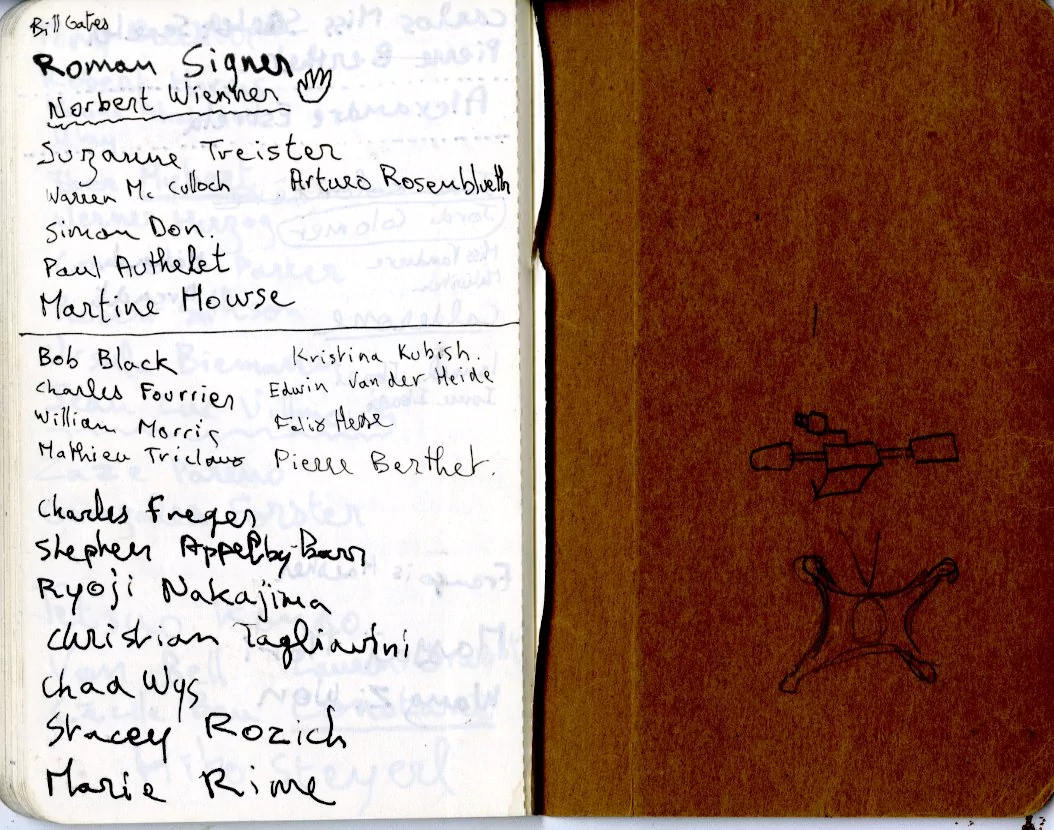 Bill Gates
Roman Signer
Norbert Wienner
Suzanne Treister
Warren Mc Culloch Arturo Rosenblueth
Simon Don.
Paul Authelet
Martine Mowse
Bob Black Kristina Kubish.
Charles Fourrier Edwin Van der Heide
William Morris Felix Hesse
Mathieu Triclaux Pierre Berthet.
Charles Freger
Stephen Appelby-Barr
Ryoji Nakajima
Christian Tagliavini
Chad Wys
Stacey Rozich
Marie Rime